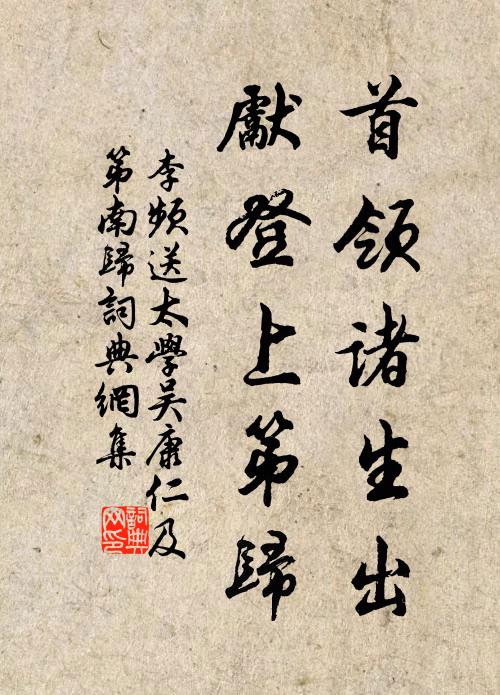 首領诸生出
獻登上第歸
李频送太學吴康仁及
第南歸詞典網集
詞典网印